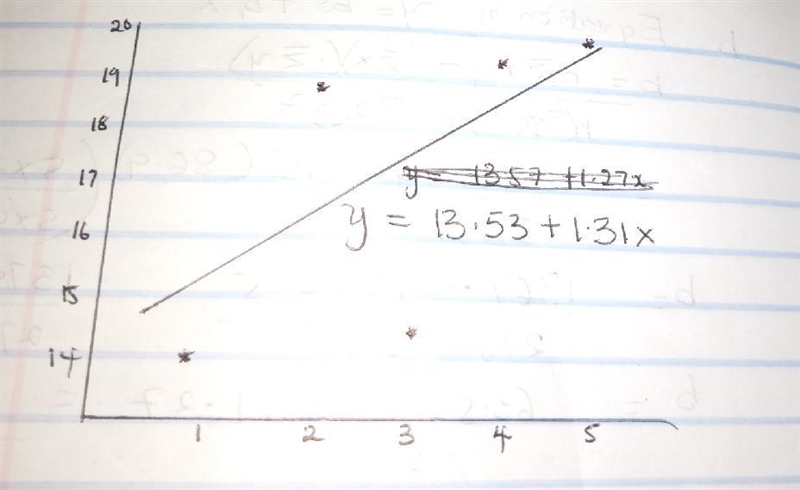 20
19
18
17
16
15
14
y = 13.57 + 1.27x
y = 13.53 + 1.31x
1 2 3 4 5